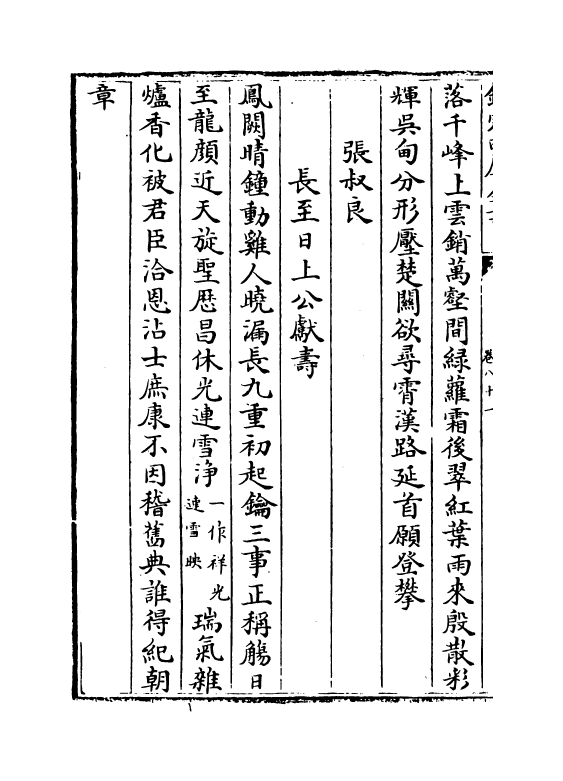 卷八十一
落千峰上雲銷萬壑間綠蘿霜後翠紅葉雨來殷散彩
輝吳甸分形壓楚關欲尋霄漢路延首願登攀
張叔良
長至日上公獻壽
鳳闕晴鐘動雞人曉漏長九重初起鑰三事正稱觴日
至龍顔近天旋聖歴昌休光連雪浄一作祥光連雪映瑞氣雜
爐香化被君臣洽恩沾士庶康不因稽舊典誰得紀朝
章